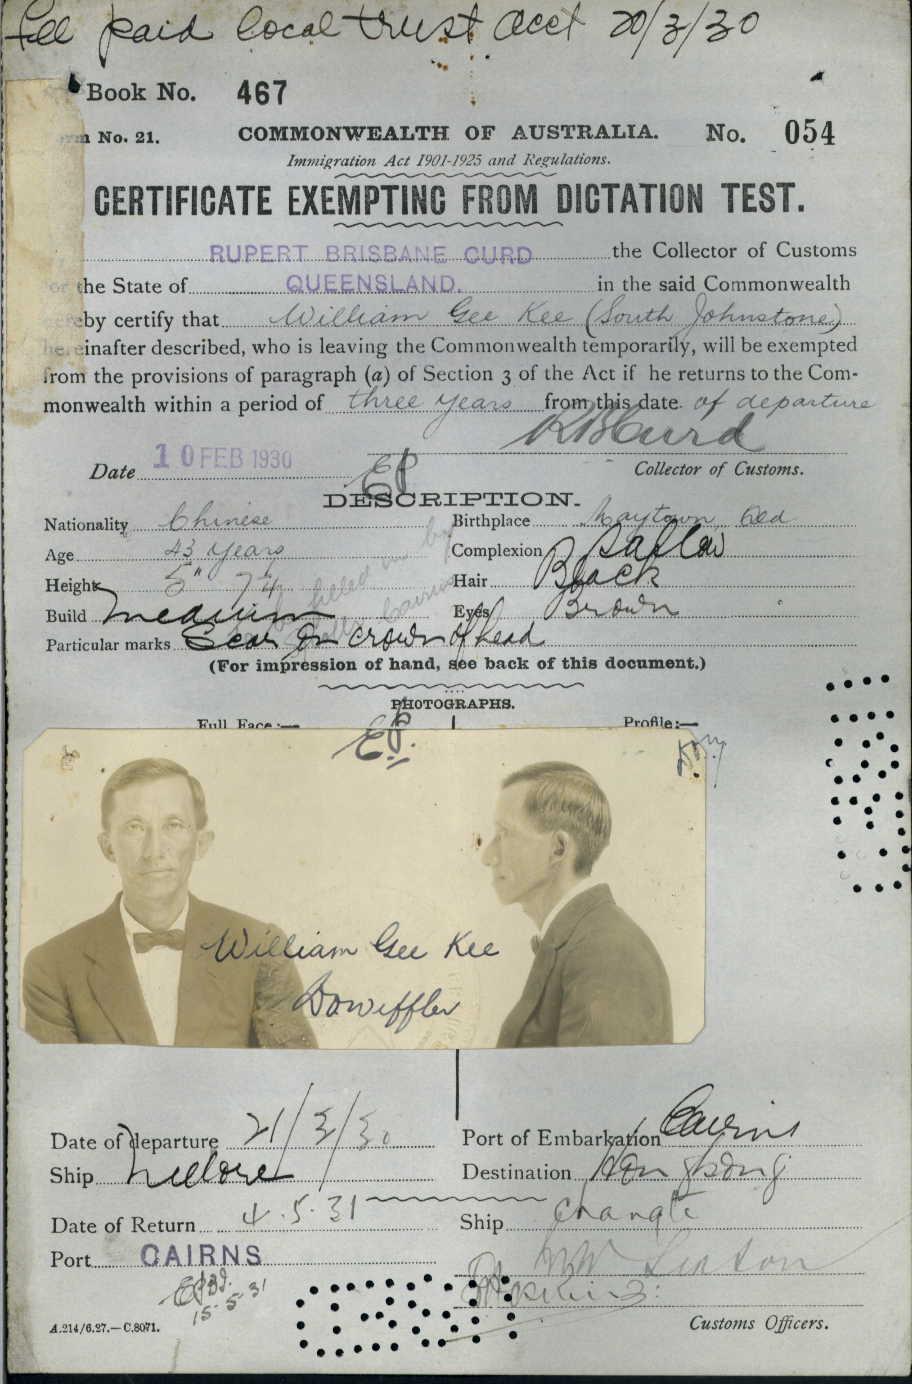 Fee paid local trust acct 20/3/30
Book No. 467
No. 21. COMMONWEALTH OF AUSTRALIA. No. 054
Immigration Act 1901-1925 and Regulations.
CERTIFICATE EXEMPTING FROM DICTATION TEST.
RUPERT BRISBANE CURD the Collector of Customs
for the State of QUEENSLAND. in the said Commonwealth
hereby certify that William Gee Kee (South Johnstone)
hereinafter described, who is leaving the Commonwealth temporarily, will be exempted
from the provisions of paragraph (a) of Section 3 of the Act if he returns to the Com-
monwealth within a period of three years from this date of departure
R B Curd
Date 10 FEB 1930 Collector of Customs.
DESCRIPTION.
Nationality Chinese Birthplace Maytown Qld
Age 43 years Complexion Sallow
Height 5" 7¼ Hair Black
Build Medium Eyes Brown
Particular marks Scar on crown of head
(For impression of hand, see back of this document.)
PHOTOGRAPHS.
Full Face:— Profile:—
William Gee Kee
Date of departure 21/3/30 Port of Embarkation Cairns
Ship Nellore Destination Hongkong
Date of Return 4.5.31 Ship Changte
Port CAIRNS
15-5-31
A.214/6.27.—C.8071. Customs Officers.